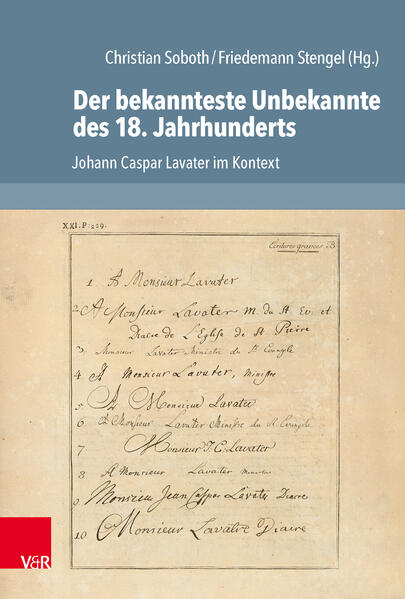 Christian Soboth/Friedemann Stengel (Hg.)
Der bekannteste Unbekannte
des 18. Jahrhunderts
Johann Caspar Lavater im Kontext
XXI. P: 229.
Ecritures gravées B
1 A Monsieur Lavater
2 A Monsieur Lavater m. du St. Ev. et
Diacre de L'Eglise de St Pierre
3 Monsieur Lavater Ministre du St. Evangile
4 A Monsieur Lavater, Ministre
5 A Monsieur Lavater
6 A Monsieur Lavater Ministre du St. Evangile
7 Monsieur J. C. Lavater
8 A Monsieur Lavater
9 Monsieur Jean Caspar Lavater Diacre
10 Monsieur Lavatre Diacre
V&R